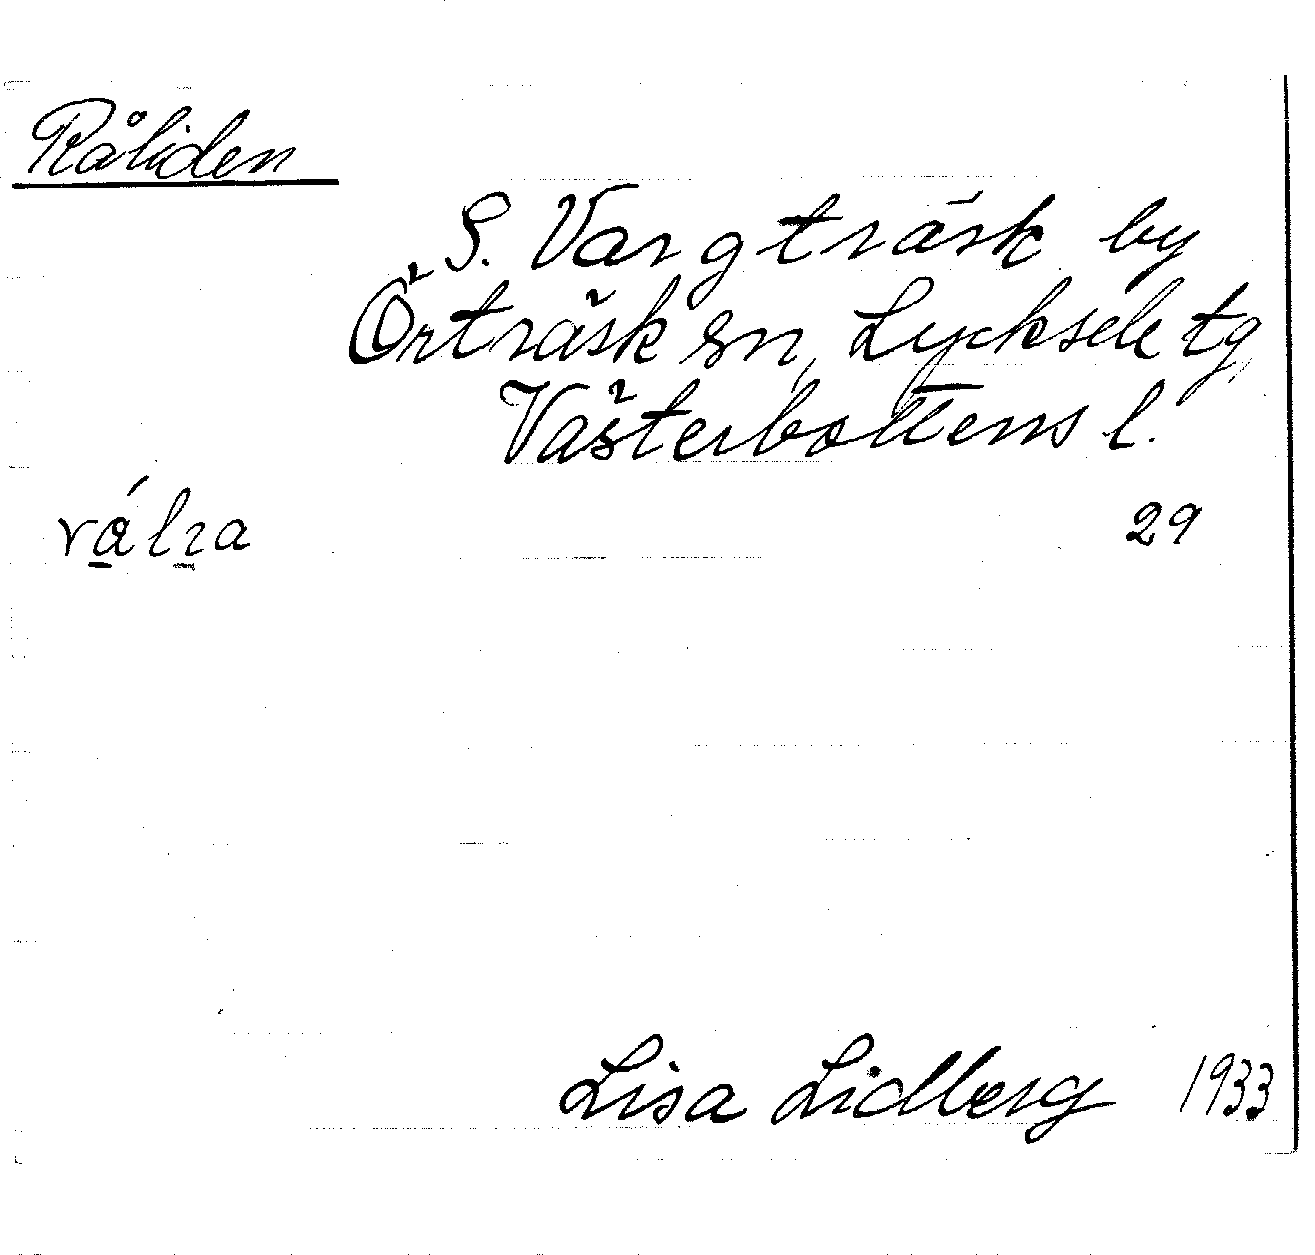 Råliden
S. Vargträsk by
Örträsk sn, Lycksele tg,
Västerbottens l.
29
Lisa Lidberg 1933